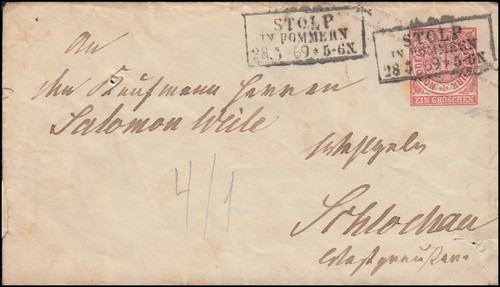 STOLP
IN POMMERN
28 5 69 * 5-6N.
STOLP
IN POMMERN
28 5 69 * 5-6N
EIN GROSCHEN
An
den Kaufmann Herren
Salomon Weile
4/1
Schlochau
Westpreußen